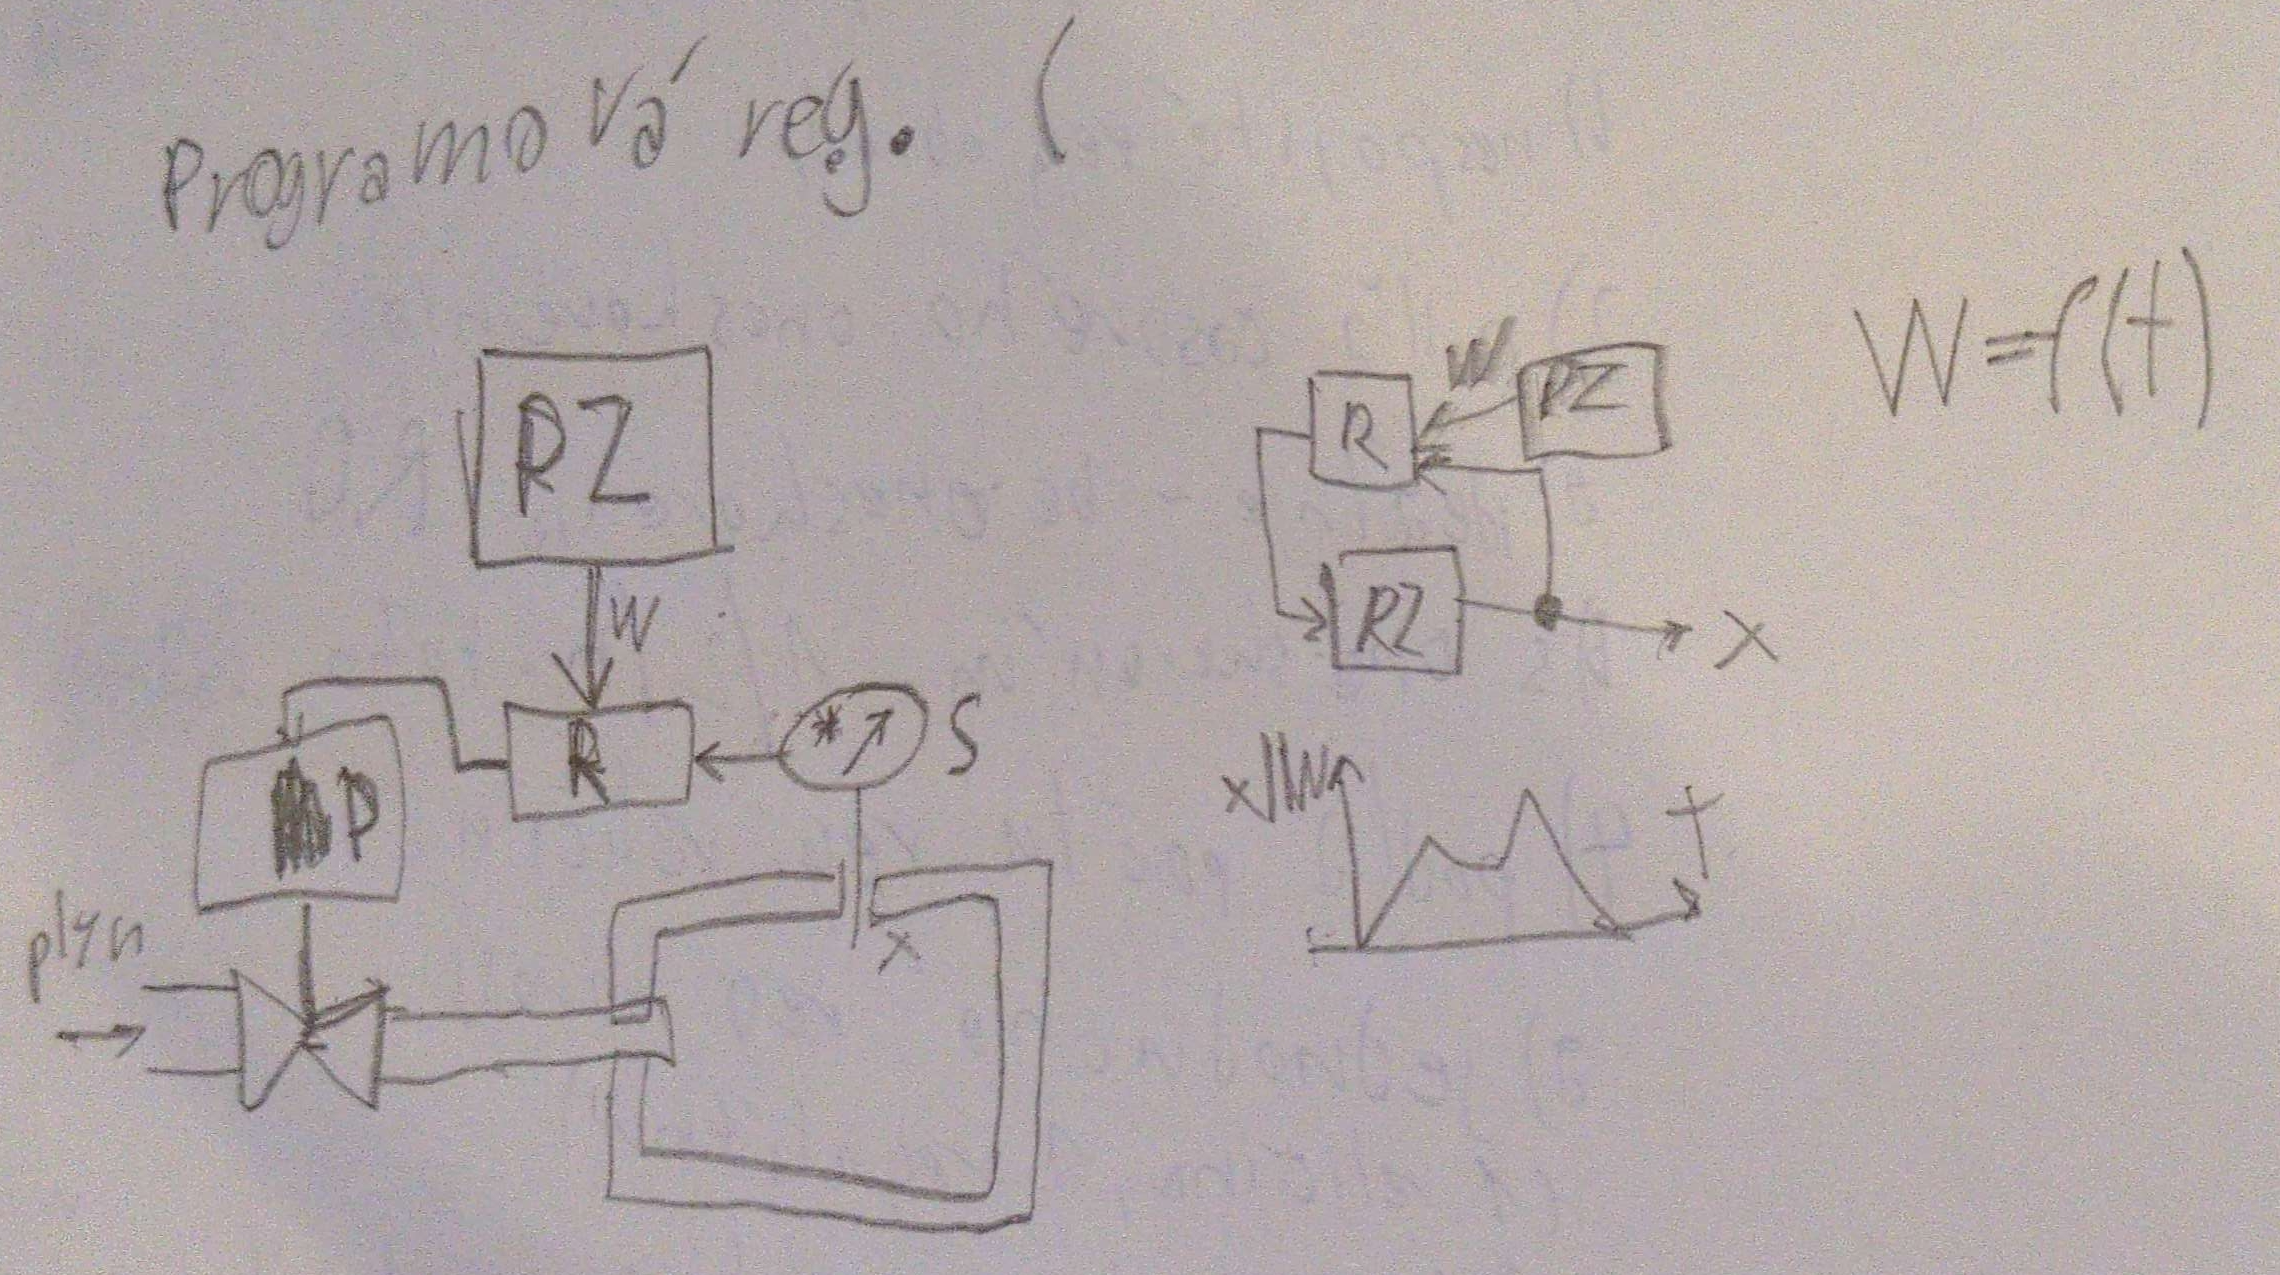 Programová reg. (
W=f(t)
RZ
W
R
S
P
plyn
x
W
R
PZ
RZ
X
x/W
t